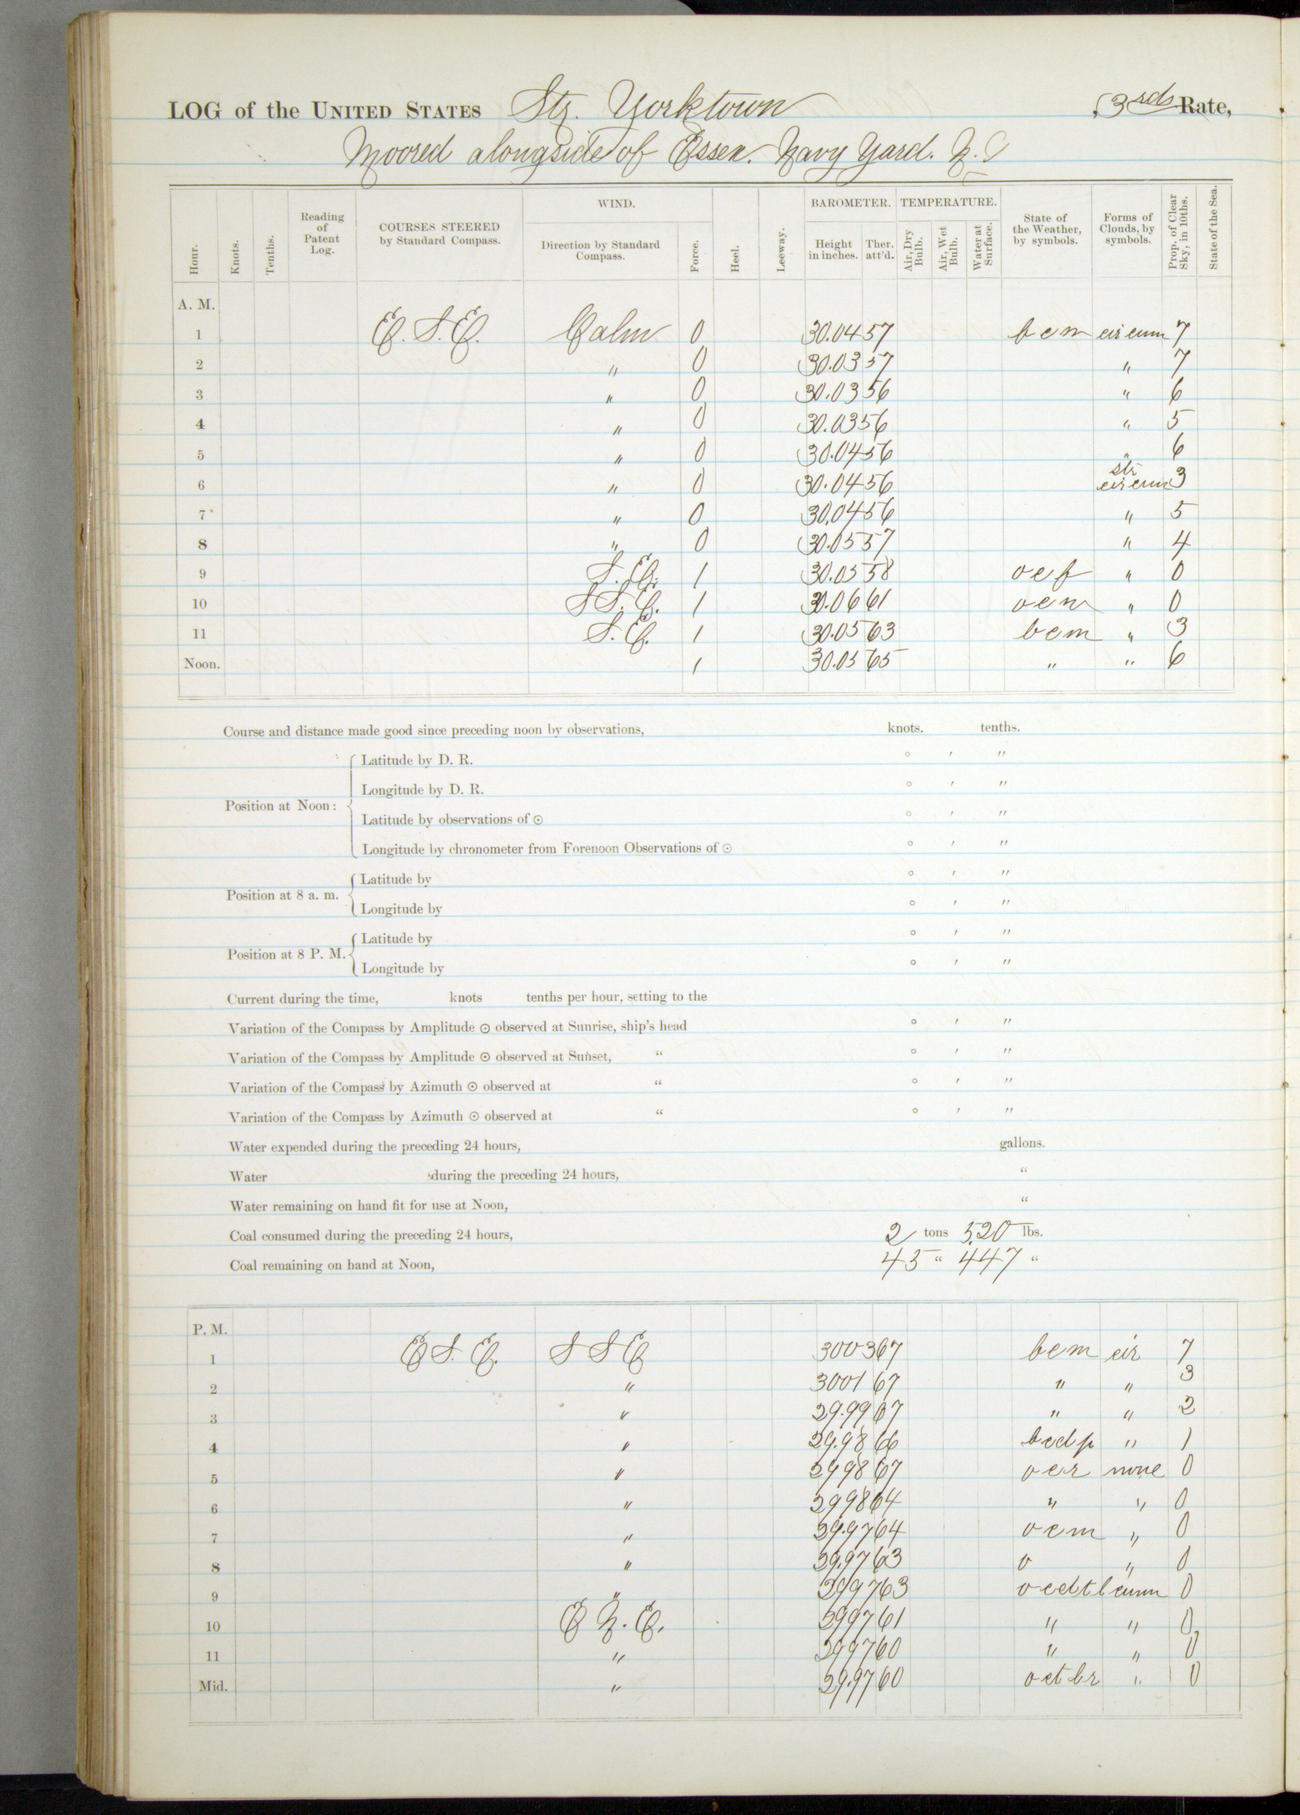 LOG of the UNITED STATES Str. Yorktown , 3rds Rate,
Moored alongside of Essex. Navy Yard. N. Y
Hour. Knots. Tenths. Reading of Patent Log. COURSES STEERED by Standard Compass. WIND. Direction by Standard Compass. Force. Heel. Leeway. BAROMETER. Height in inches. Ther. att'd. TEMPERATURE. Air, Dry Bulb. Air, Wet Bulb. Water at Surface. State of the Weather, by symbols. Forms of Clouds, by symbols. Prop. of Clear Sky, in 10ths. State of the Sea.
A. M.
1 E. S. E. Calm 0 30.04 57 bcm cir cum 7
2 " 0 30.03 57 " 7
3 " 0 30.03 56 " 6
4 " 0 30.03 56 " 5
5 " 0 30.04 56 " 6
6 " 0 30.04 56 str cir cum 3
7 " 0 30.04 56 " 5
8 " 0 30.05 57 " 4
9 S. E. 1 30.05 58 ocf " 0
10 S S. E. 1 30.06 61 ocm " 0
11 S. E. 1 30.05 63 bcm " 3
Noon. 1 30.05 65 " " 6
Course and distance made good since preceding noon by observations, knots. tenths.
Position at Noon: Latitude by D. R. ° ′ ″
Longitude by D. R. ° ′ ″
Latitude by observations of ☉ ° ′ ″
Longitude by chronometer from Forenoon Observations of ☉ ° ′ ″
Position at 8 a. m. Latitude by ° ′ ″
Longitude by ° ′ ″
Position at 8 P. M. Latitude by ° ′ ″
Longitude by ° ′ ″
Current during the time, knots tenths per hour, setting to the
Variation of the Compass by Amplitude ☉ observed at Sunrise, ship's head ° ′ ″
Variation of the Compass by Amplitude ☉ observed at Sunset, " ° ′ ″
Variation of the Compass by Azimuth ☉ observed at " ° ′ ″
Variation of the Compass by Azimuth ☉ observed at " ° ′ ″
Water expended during the preceding 24 hours, gallons.
Water during the preceding 24 hours, "
Water remaining on hand fit for use at Noon, "
Coal consumed during the preceding 24 hours, 2 tons 520 lbs.
Coal remaining on hand at Noon, 45 " 447 "
P. M.
1 E S. E. S S E 3003 67 bcm cir 7
2 " 3001 67 " " 3
3 " 29.99 67 " " 2
4 " 29.98 66 bcdp " 1
5 " 2998 67 ocr none 0
6 " 2998 64 " " 0
7 " 29.97 64 ocm " 0
8 " 29.97 63 o " 0
9 " 2997 63 ocdtl cum 0
10 E N. E. 2997 61 " " 0
11 " 2997 60 " " 0
Mid. " 29.97 60 octlr " 0